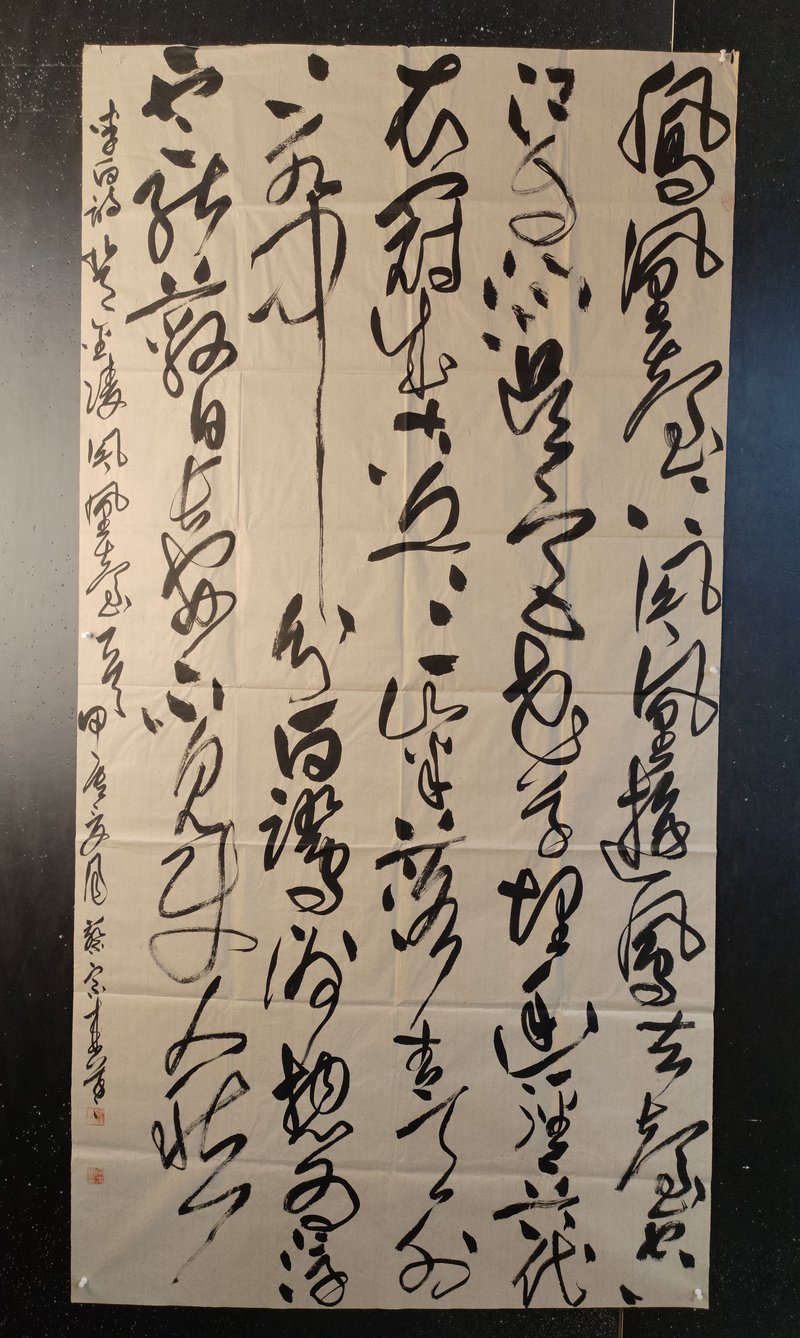 鳳凰臺上鳳凰遊鳳去臺空
江自流吳宮花草埋幽徑晉代
衣冠成古丘三山半落青天外
二水中分白鷺洲總為浮
雲能蔽日長安不見使人愁
李白詩登金陵鳳凰臺一首甲辰夏月